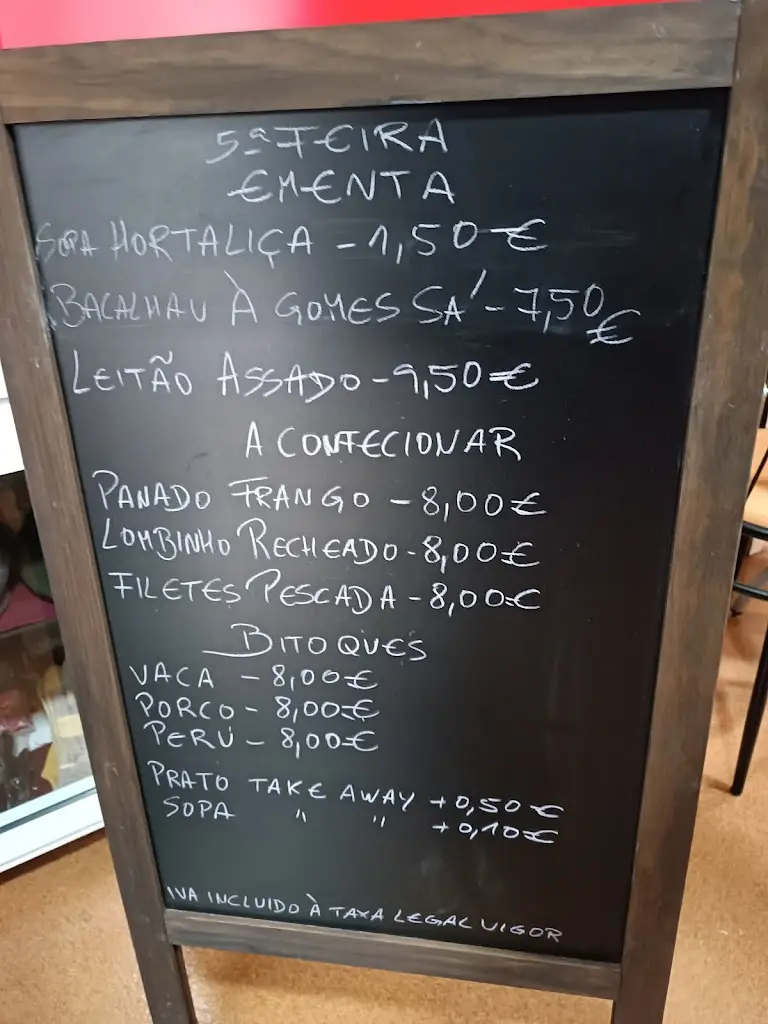 5ª FEIRA
EMENTA
SOPA HORTALIÇA - 1,50 €
BACALHAU À GOMES SÁ - 7,50 €
LEITÃO ASSADO - 9,50 €
A CONFECIONAR
PANADO FRANGO - 8,00 €
LOMBINHO RECHEADO - 8,00 €
FILETES PESCADA - 8,00 €
BITOQUES
VACA - 8,00 €
PORCO - 8,00 €
PERÚ - 8,00 €
PRATO TAKE AWAY +0,50 €
SOPA " " +0,10 €
IVA INCLUIDO À TAXA LEGAL VIGOR